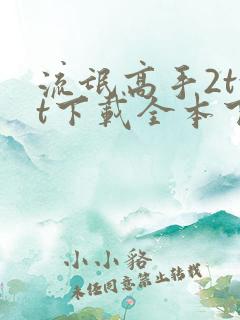 流氓高手2t
t下载全本
小小貉
未经同意禁止转载